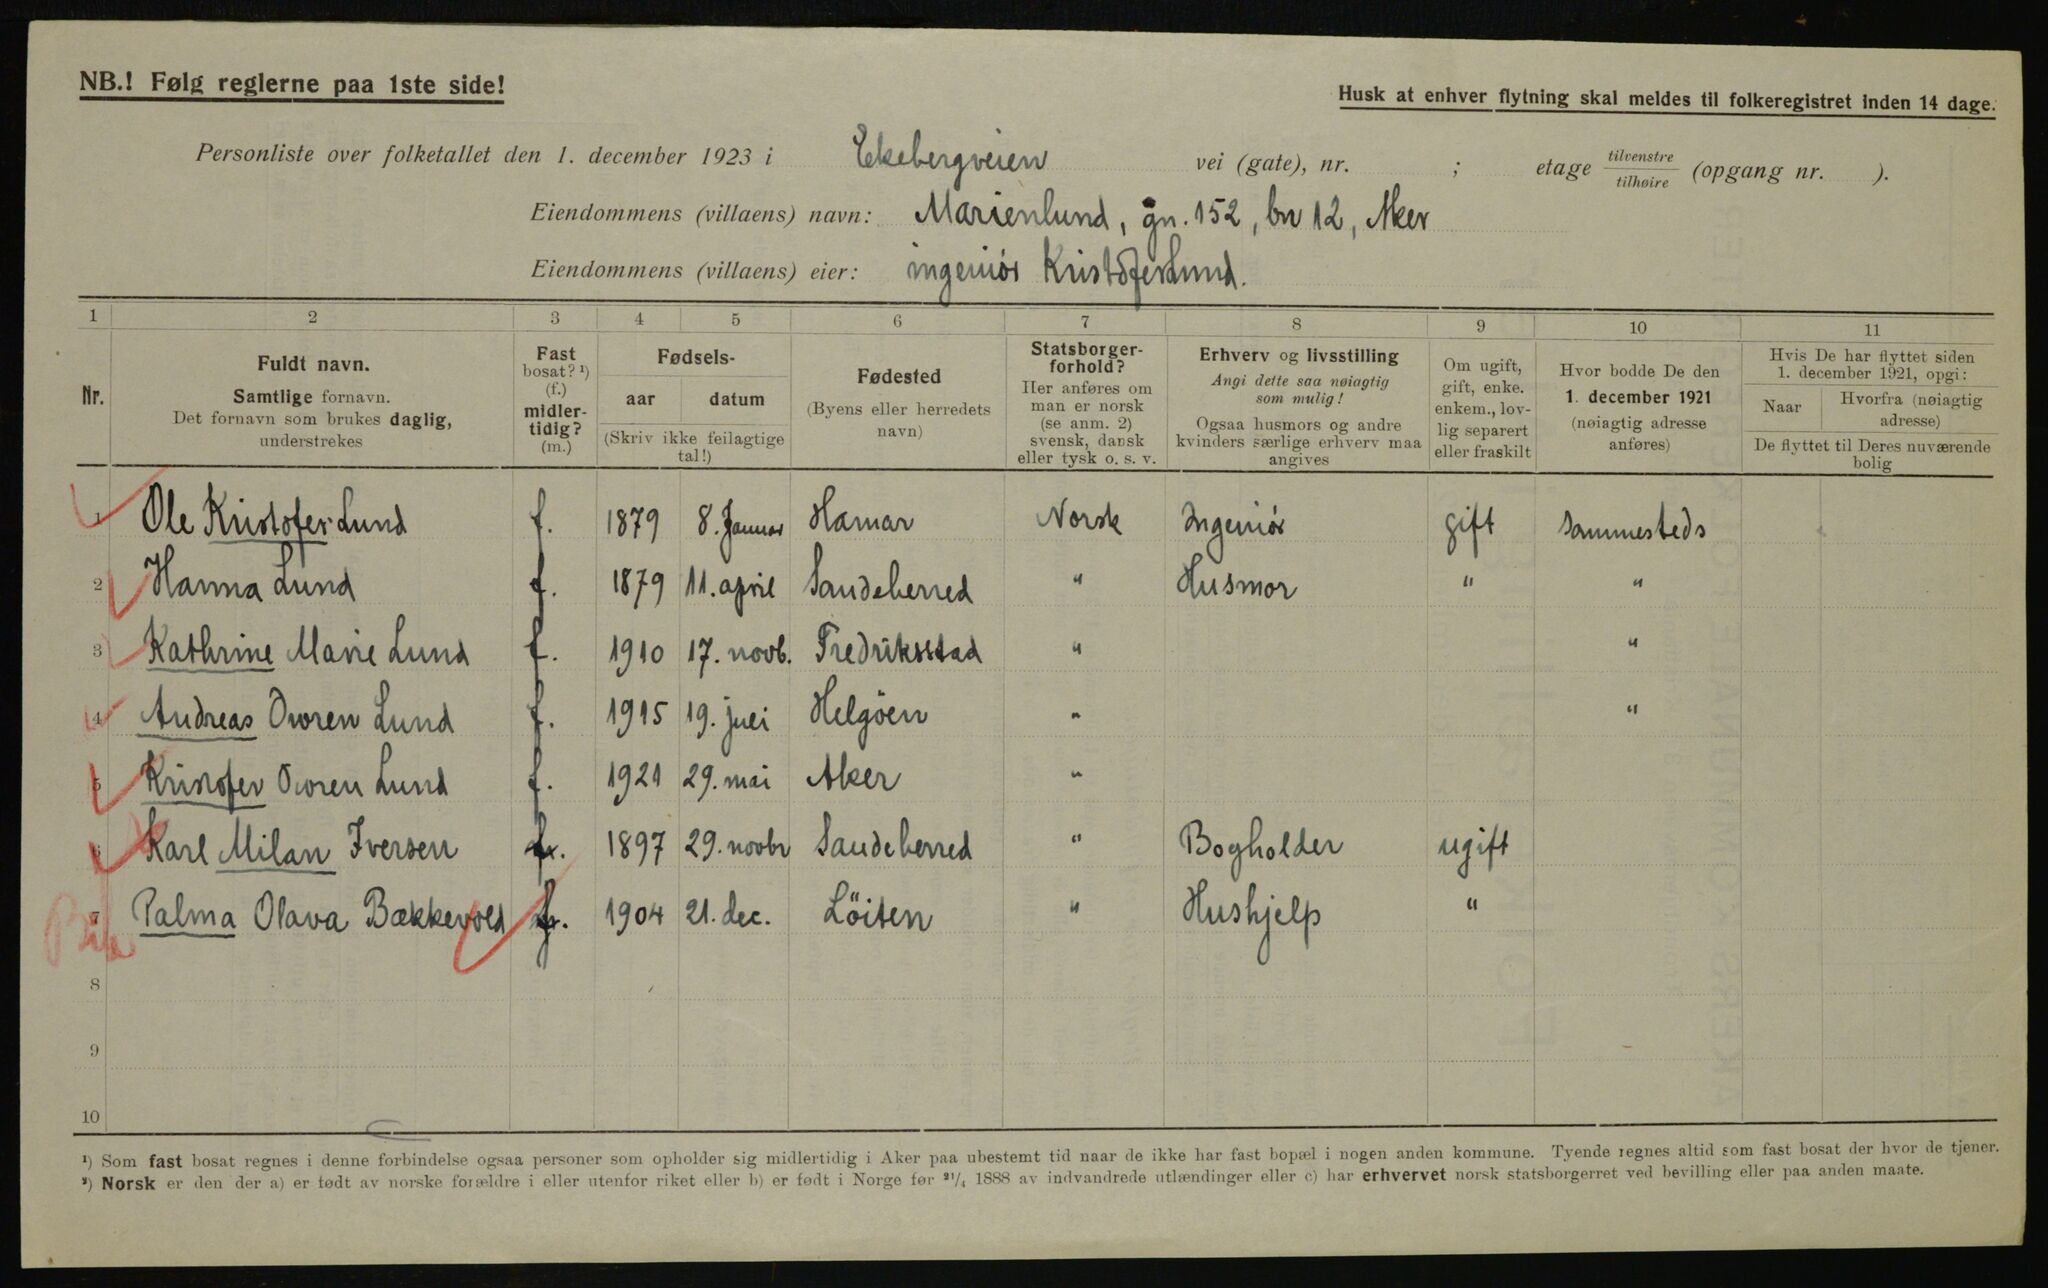 NB.! Følg reglerne paa 1ste side!
Husk at enhver flytning skal meldes til folkeregistret inden 14 dage.
Personliste over folketallet den 1. december 1923 i Ekebergveien vei (gate), nr. ; etage tilvenstre tilhøire (opgang nr. ).
Eiendommens (villaens) navn: Marienlund, gn. 152, bn 12, Aker
Eiendommens (villaens) eier: ingeniør Kristofer Lund.
1 2 3 4 5 6 7 8 9 10 11
Nr.
Fuldt navn.
Samtlige fornavn.
Det fornavn som brukes daglig,
understrekes
Fast
bosat? ¹)
(f.)
midler-
tidig?
(m.)
Fødsels-
aar datum
(Skriv ikke feilagtige
tal!)
Fødested
(Byens eller herredets
navn)
Statsborger-
forhold?
Her anføres om
man er norsk
(se anm. 2)
svensk, dansk
eller tysk o. s. v.
Erhverv og livsstilling
Angi dette saa nøiagtig
som mulig!
Ogsaa husmors og andre
kvinders særlige erhverv maa
angives
Om ugift,
gift, enke.
enkem., lov-
lig separert
eller fraskilt
Hvor bodde De den
1. december 1921
(nøiagtig adresse
anføres)
Hvis De har flyttet siden
1. december 1921, opgi:
Naar Hvorfra (nøiagtig
adresse)
De flyttet til Deres nuværende
bolig
1 Ole Kristofer Lund f. 1879 8. Januar Hamar Norsk Ingeniør gift Sammesteds
2 Hanna Lund f. 1879 11. april Sandeherred " Husmor " "
3 Kathrine Marie Lund f. 1910 17. novb. Fredriksstad " "
4 Andreas Dworen Lund f. 1915 19. juli Helgöen " "
5 Kristofer Dworen Lund f. 1921 29. mai Aker "
6 Karl Milan Iversen f. 1897 29. novbr Sandeherred " Bogholder ugift
7 Palma Olava Bækkevold f. 1904 21. dec. Löiten " Hushjelp "
8
9
10
¹) Som fast bosat regnes i denne forbindelse ogsaa personer som opholder sig midlertidig i Aker paa ubestemt tid naar de ikke har fast bopæl i nogen anden kommune. Tyende regnes altid som fast bosat der hvor de tjener.
²) Norsk er den der a) er født av norske forældre i eller utenfor riket eller b) er født i Norge før ²¹/₄ 1888 av indvandrede utlændinger eller c) har erhvervet norsk statsborgerret ved bevilling eller paa anden maate.